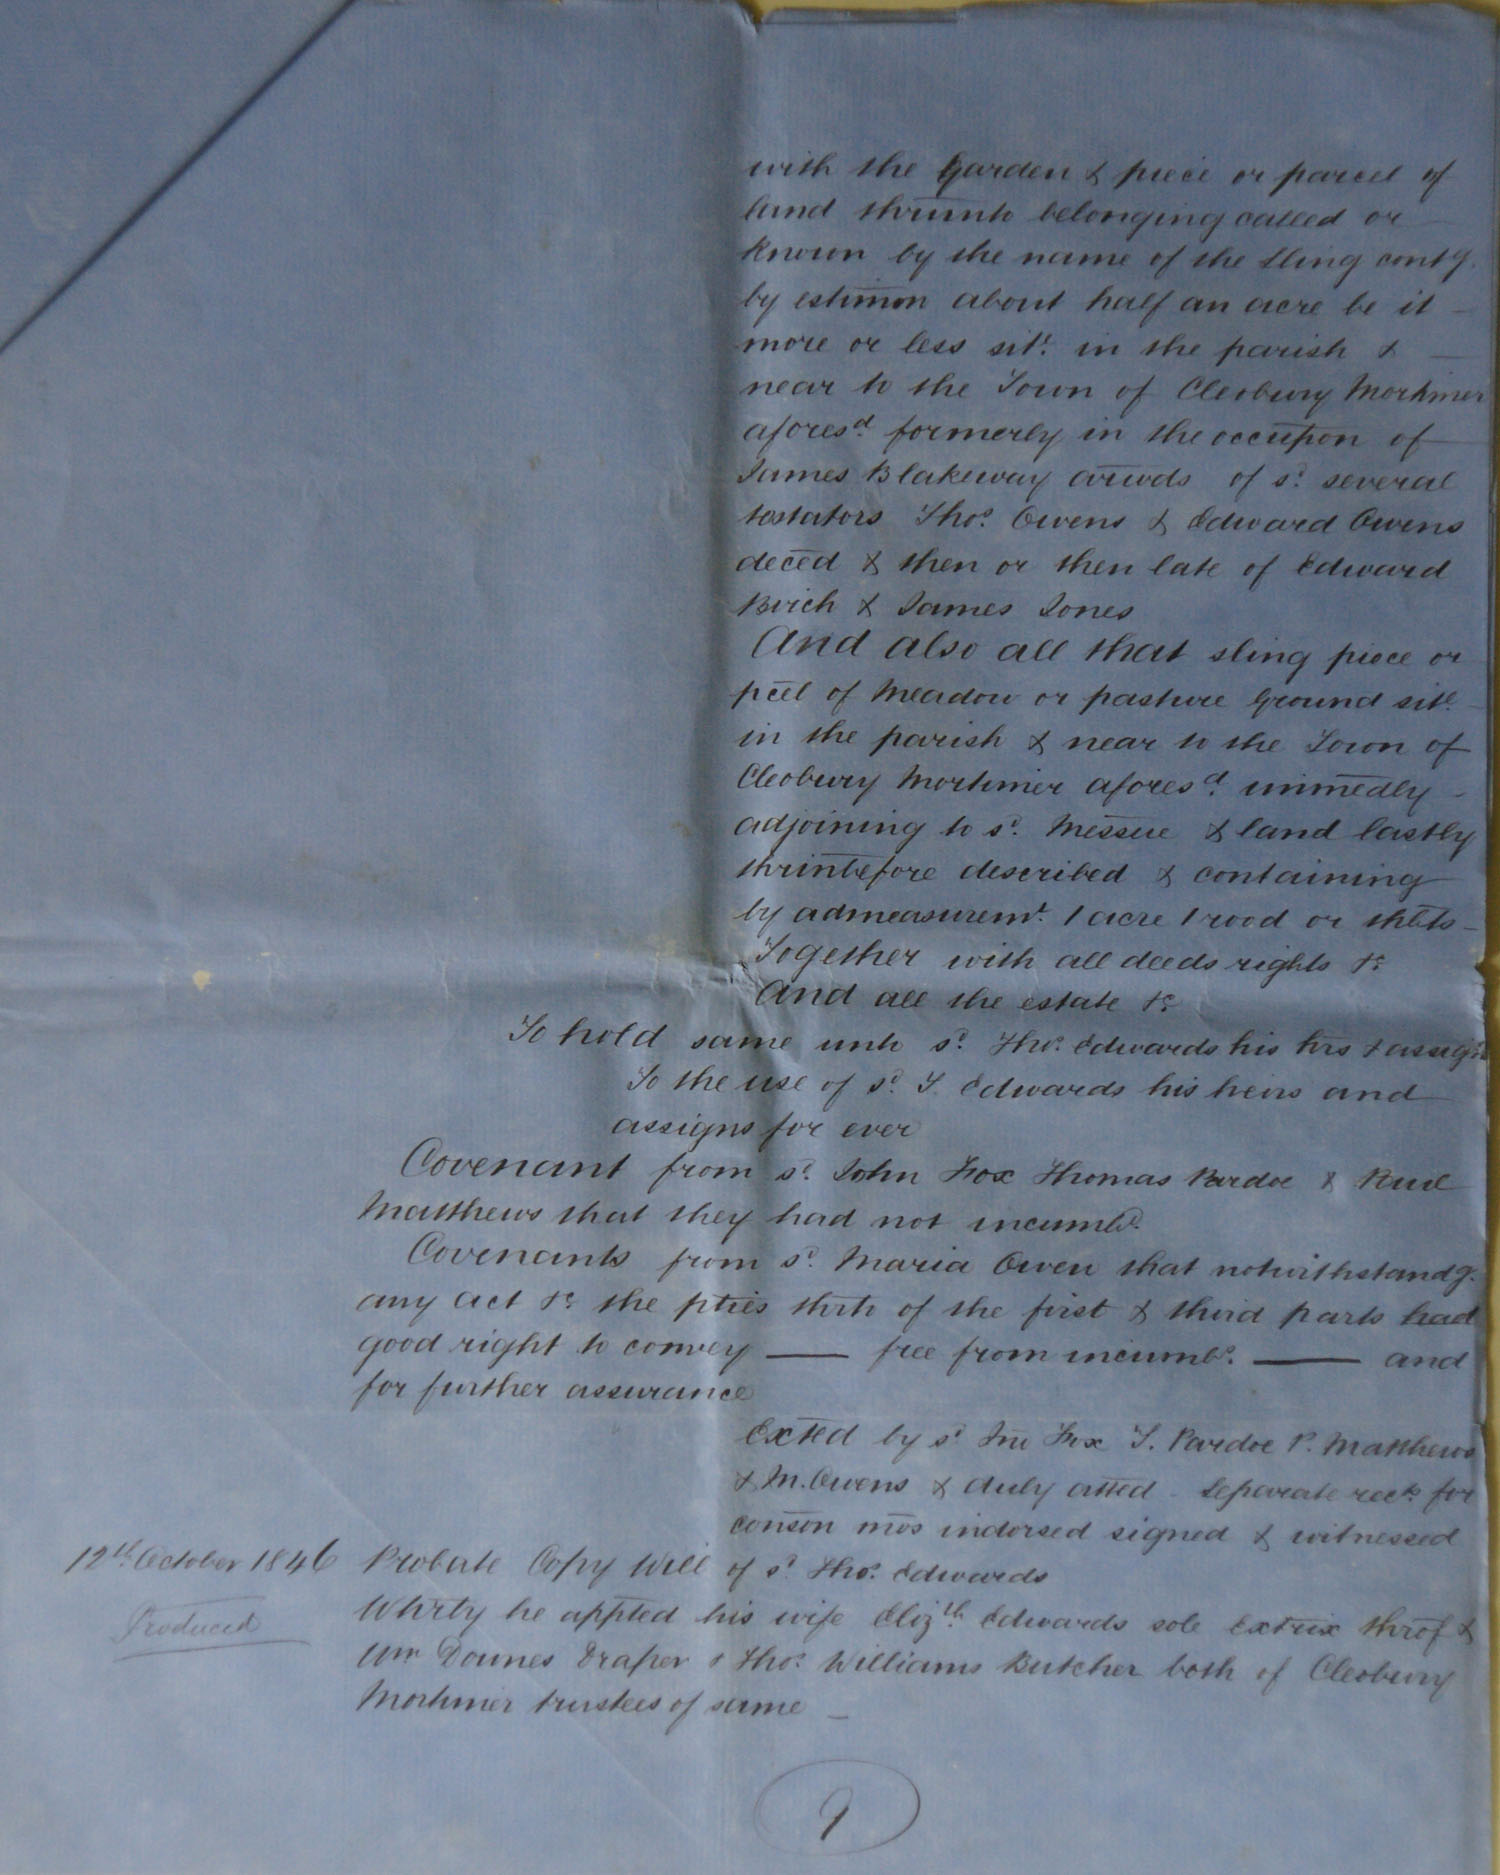 with the Garden & piece or parcel of
land thrunto belonging called or
known by the name of the Sling contg.
by estimon about half an acre be it
more or less site. in the parish &
near to the Town of Cleobury Mortimer
aforesd. formerly in the occupon of
James Blakeway arwds of sd. several
testators Thos. Owens & Edward Owens
deced & then or then late of Edward
Birch & James Jones
And also all that sling piece or
pcel of Meadow or pasture Ground site.
in the parish & near to the Town of
Cleobury Mortimer aforesd. immedly
adjoining to sd. Messue & land lastly
thrinbefore described & containing
by admeasuremt. 1 acre 1 rood or thbts
Together with all deeds rights &c
And all the estate &c
To hold same unto sd. Thos. Edwards his hrs & assigns
To the use of sd. T. Edwards his heirs and
assigns for ever
Covenant from sd. John Fox Thomas Pardoe & Paul
Matthews that they had not incumbd.
Covenants from sd. Maria Owen that notwithstandg.
any act &c the pties thrto of the first & third parts had
good right to convey —— free from incumbs. —— and
for further assurance
Exted by sd Jno Fox T. Pardoe P. Matthews
& M. Owens & duly atted. Separate rects for
conson mos indorsed signed & witnessed
12th. October 1846 Probate Copy Will of sd. Thos. Edwards
Produced
Whrby he appted his wife Elizth. Edwards sole Extrix throf &
Wm Downes Draper & Thos. Williams Butcher both of Cleobury
Mortimer trustees of same
9